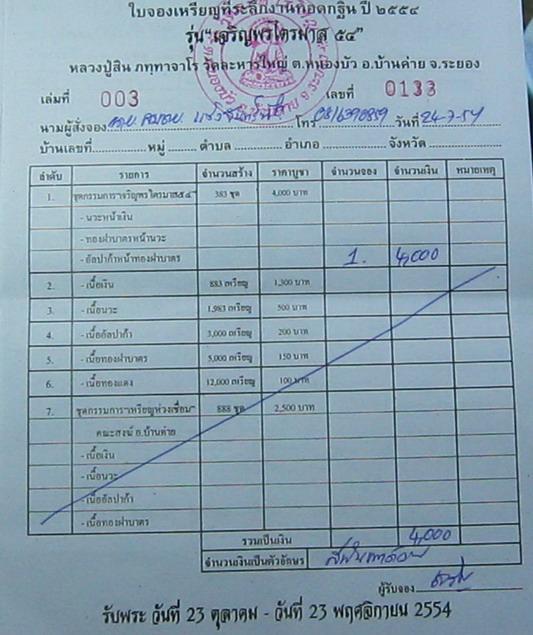 ใบจองเหรียญที่ระลึกงานทอดกฐิน ปี ๒๕๕๔
รุ่น"เจริญพรไตรมาส ๕๔"
หลวงปู่สิน ภทฺทาจาโร วัดละหารใหญ่ ต.หนองบัว อ.บ้านค่าย จ.ระยอง
เล่มที่ 003 เลขที่ 0133
นามผู้สั่งจอง โทร 0816390859 วันที่ 24-7-54
บ้านเลขที่ หมู่ ตำบล อำเภอ จังหวัด
ลำดับ รายการ จำนวนสร้าง ราคาบูชา จำนวนจอง จำนวนเงิน หมายเหตุ
1. ชุดกรรมการ"เจริญพรไตรมาส๕๔" 383 ชุด 4,000 บาท
- นวะหน้าเงิน
- ทองฝาบาตรหน้านวะ
- อัลปาก้าหน้าทองฝาบาตร 1. 4,000
2. - เนื้อเงิน 883 เหรียญ 1,300 บาท
3. - เนื้อนวะ 1,983 เหรียญ 500 บาท
4. - เนื้ออัลปาก้า 3,000 เหรียญ 200 บาท
5. - เนื้อทองฝาบาตร 5,000 เหรียญ 150 บาท
6. - เนื้อทองแดง 12,000 เหรียญ 100 บาท
7. ชุดกรรมการ"เหรียญห่วงเชื่อม" 888 ชุด 2,500 บาท
คณะสงฆ์ อ.บ้านค่าย
- เนื้อเงิน
- เนื้อนวะ
- เนื้ออัลปาก้า
- เนื้อทองฝาบาตร
รวมเป็นเงิน 4,000
จำนวนเงินเป็นตัวอักษร สี่พันบาทถ้วน
ผู้รับจอง
รับพระ วันที่ 23 ตุลาคม - วันที่ 23 พฤศจิกายน 2554